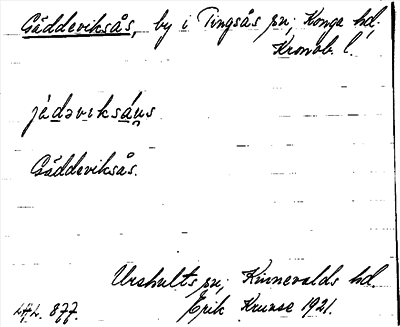 Gäddeviksås, by i Tingsås sn, Konga hd,
Kronob. l.
jèdəviksáus
Gäddeviksås.
Urshults sn, Kinnevalds hd.
877. Erik Kruuse 1921.